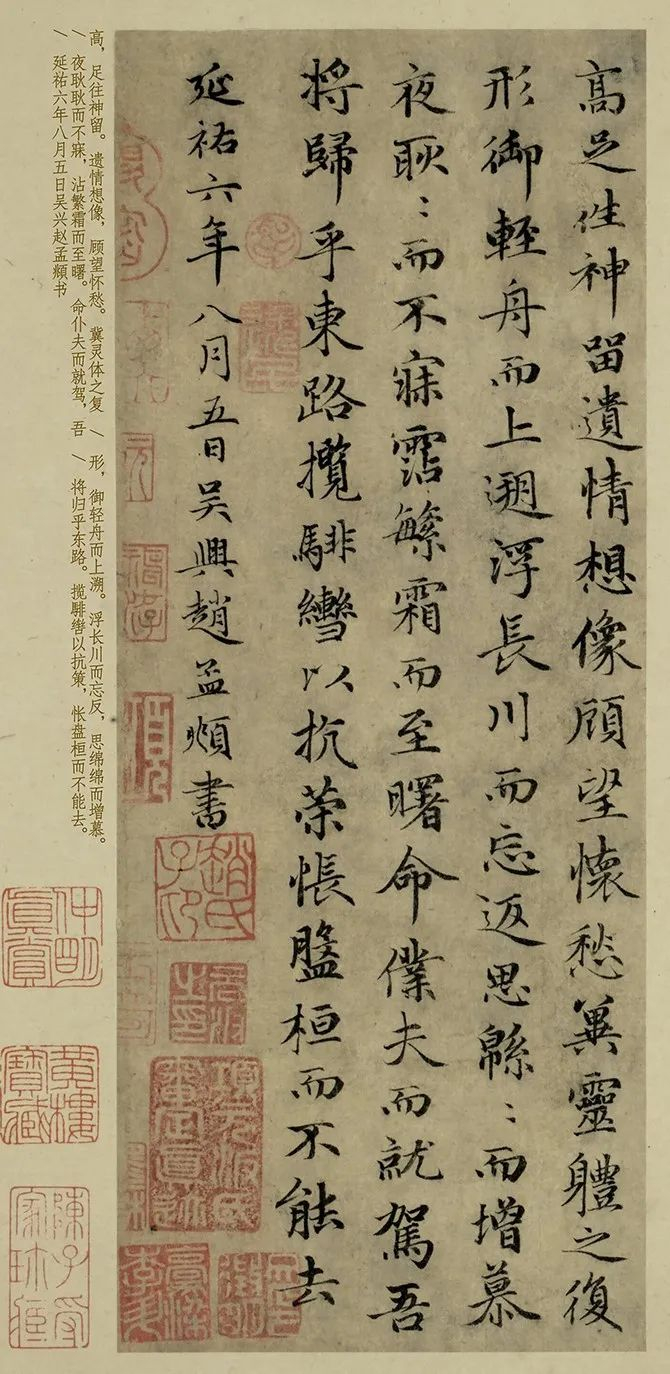 高足往神留遺情想像顧望懷愁冀靈體之復
形御輕舟而上遡浮長川而忘返思緜〻而增慕
夜耿〻而不寐霑繁霜而至曙命僕夫而就駕吾
將歸乎東路攬騑轡以抗策悵盤桓而不能去
延祐六年八月五日吴興趙孟頫書
趙氏子昂
項元汴氏審定真跡
高，足往神留。遗情想像，顾望怀愁。冀灵体之复 \ 形，御轻舟而上溯。浮长川而忘反，思绵绵而增慕。
\ 夜耿耿而不寐，沾繁霜而至曙。命仆夫而就驾，吾 \ 将归乎东路。揽騑辔以抗策，怅盘桓而不能去。
\ 延祐六年八月五日吴兴赵孟頫书
仲明真賞
黄樓寶藏
陳子受家珍藏